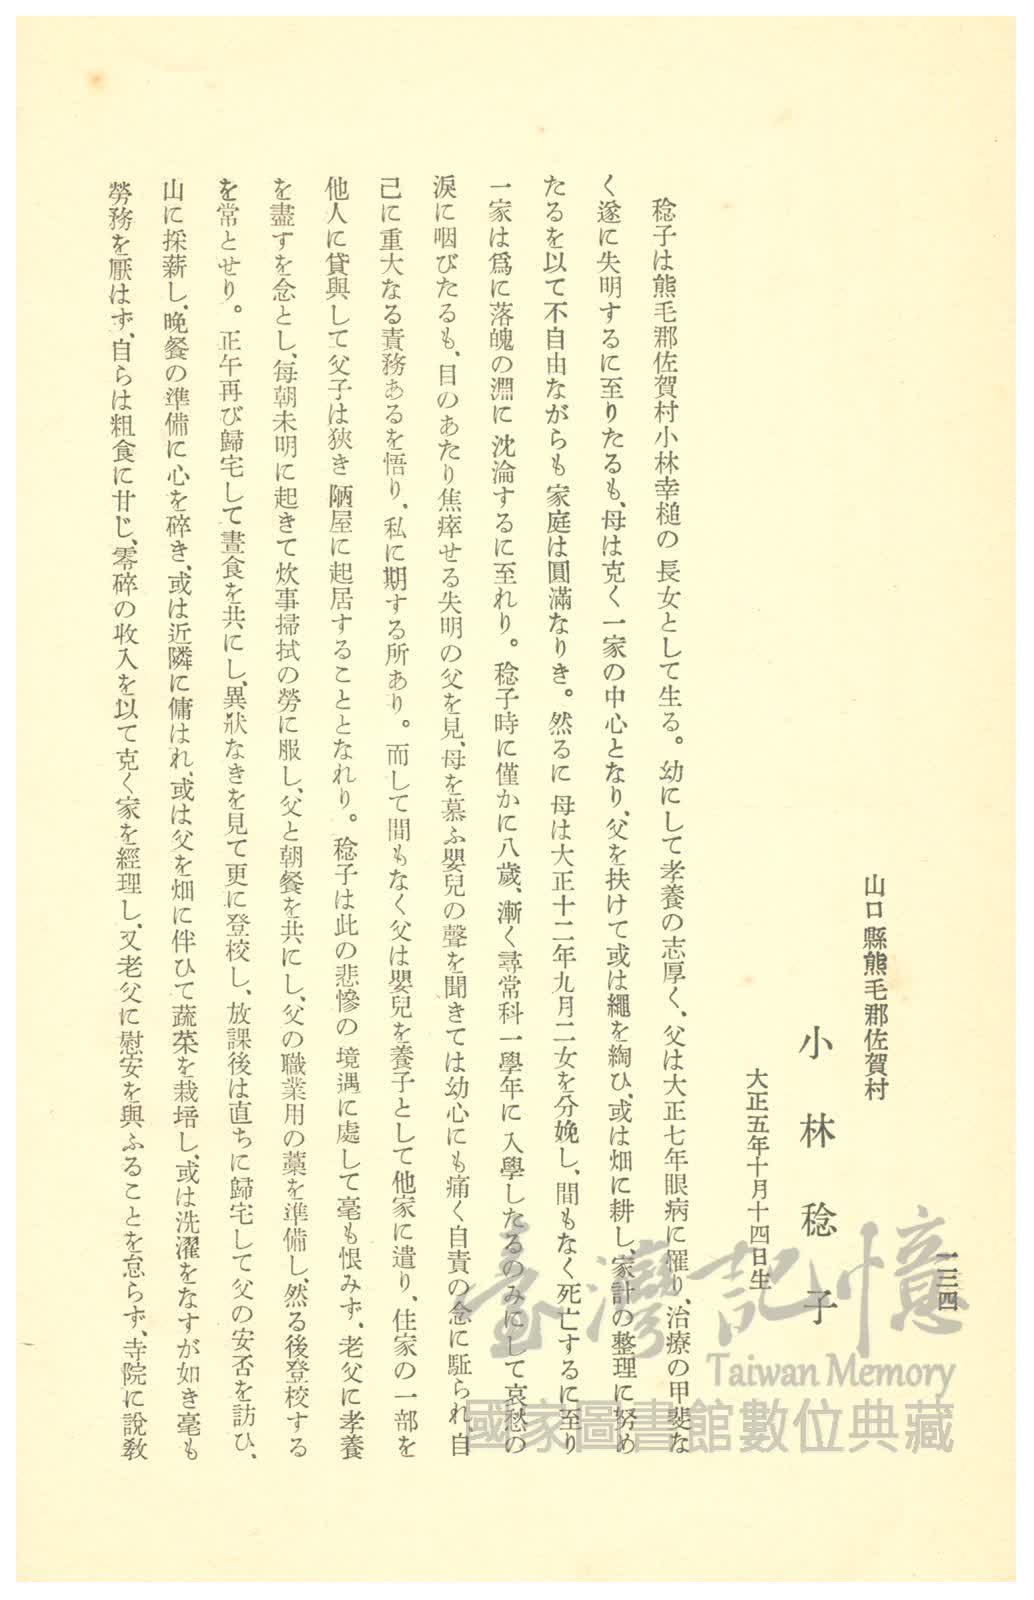 一三四
山口縣熊毛郡佐賀村
小林稔子
大正五年十月十四日生
稔子は熊毛郡佐賀村小林幸槌の長女として生る。幼にして孝養の志厚く、父は大正七年眼病に罹り、治療の甲斐な
く遂に失明するに至りたるも、母は克く一家の中心となり、父を扶けて或は繩を綯ひ、或は畑に耕し、家計の整理に努め
たるを以て不自由ながらも家庭は圓滿なりき。然るに母は大正十二年九月二女を分娩し、間もなく死亡するに至り
一家は爲に落魄の淵に沈淪するに至れり。稔子時に僅かに八歲、漸く尋常科一學年に入學したるのみにして哀愁の
淚に咽びたるも、目のあたり焦瘁せる失明の父を見、母を慕ふ嬰兒の聲を聞きては幼心にも痛く自責の念に駈られ、自
己に重大なる責務あるを悟り、私に期する所あり。而して間もなく父は嬰兒を養子として他家に遣り、住家の一部を
他人に貸與して父子は狹き陋屋に起居することとなれり。稔子は此の悲慘の境遇に處して毫も恨みず、老父に孝養
を盡すを念とし、每朝未明に起きて炊事掃拭の勞に服し、父と朝餐を共にし、父の職業用の藁を準備し、然る後登校する
を常とせり。正午再び歸宅して晝食を共にし、異狀なきを見て更に登校し、放課後は直ちに歸宅して父の安否を訪ひ、
山に採薪し、晩餐の準備に心を碎き、或は近隣に傭はれ、或は父を畑に伴ひて蔬菜を栽培し、或は洗濯をなすが如き毫も
勞務を厭はず、自らは粗食に甘じ、零碎の收入を以て克く家を經理し、又老父に慰安を與ふることを怠らず、寺院に說敎
臺灣記憶
Taiwan Memory
國家圖書館數位典藏